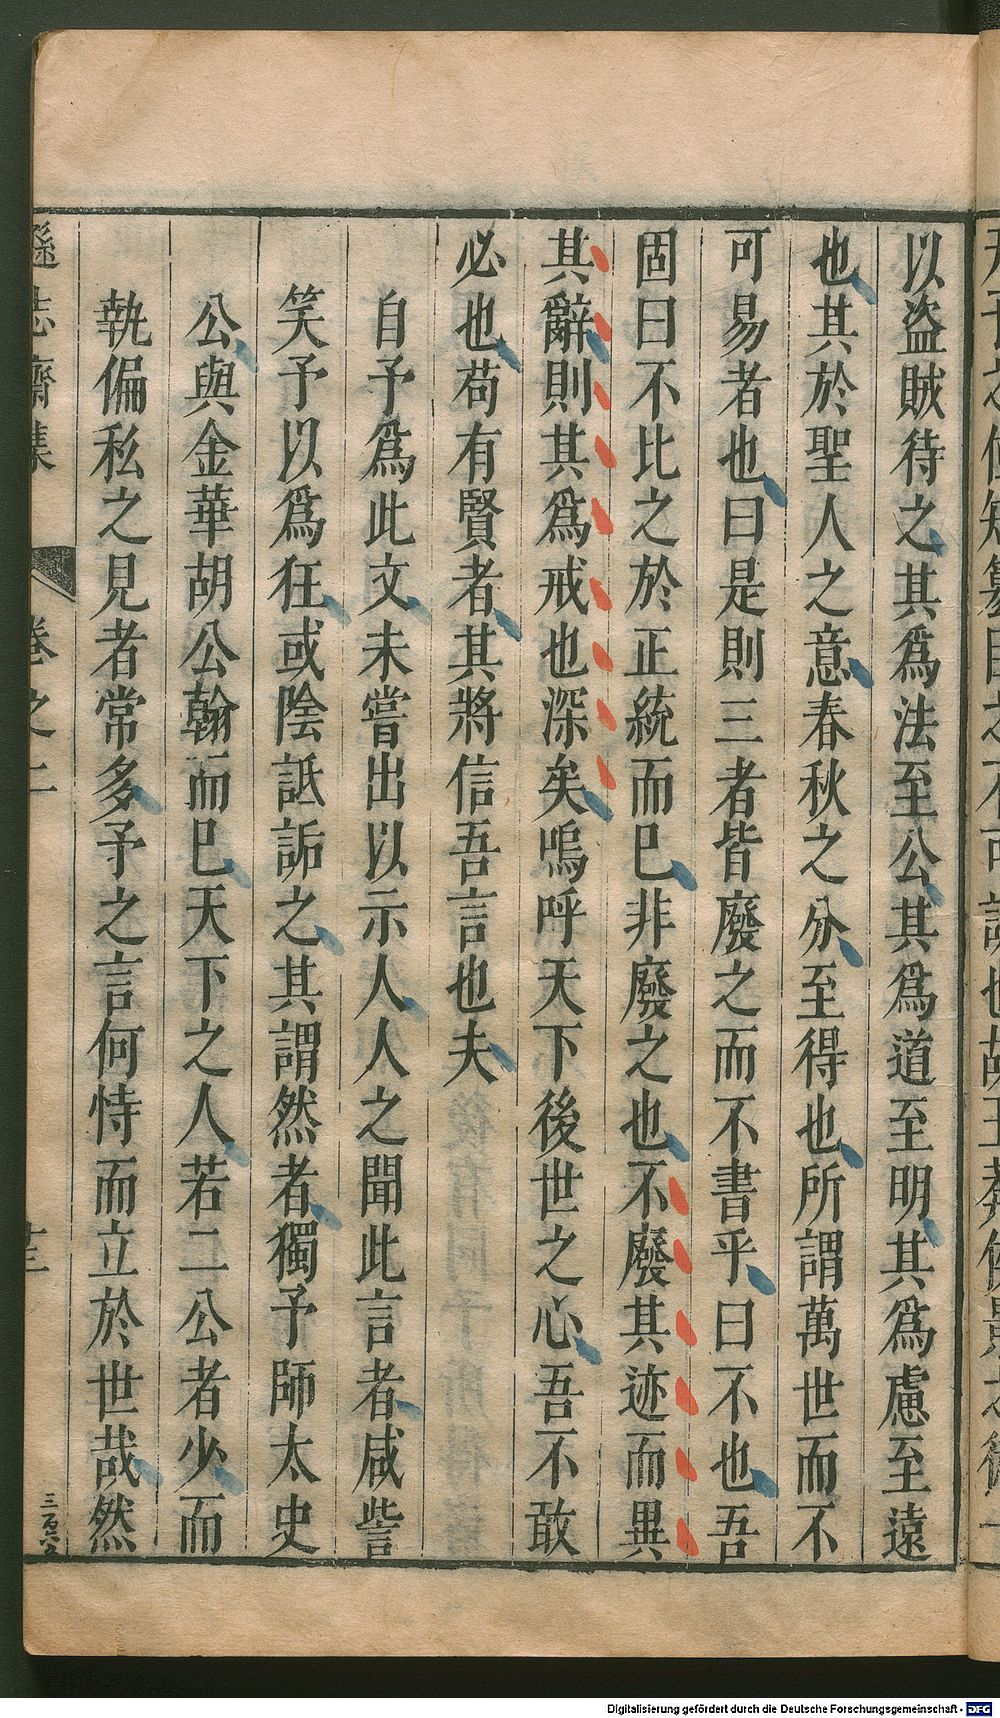 以盜賊待之其爲法至公其爲道至明其爲慮至遠
也其於聖人之意春秋之分至得也所謂萬世而不
可易者也曰是則三者皆廢之而不書乎曰不也吾
固曰不比之於正統而已非廢之也不廢其迹而異
其辭則其爲戒也深矣嗚呼天下後世之心吾不敢
必也苟有賢者其將信吾言也夫
自予爲此文未嘗出以示人人之聞此言者咸訾
笑予以爲狂或陰詆詬之其謂然者獨予師太史
公與金華胡公翰而已天下之人若二公者少而
執偏私之見者常多予之言何恃而立於世哉然
遜志齋集
卷之二
三百六
Digitalisierung gefördert durch die Deutsche Forschungsgemeinschaft - DFG